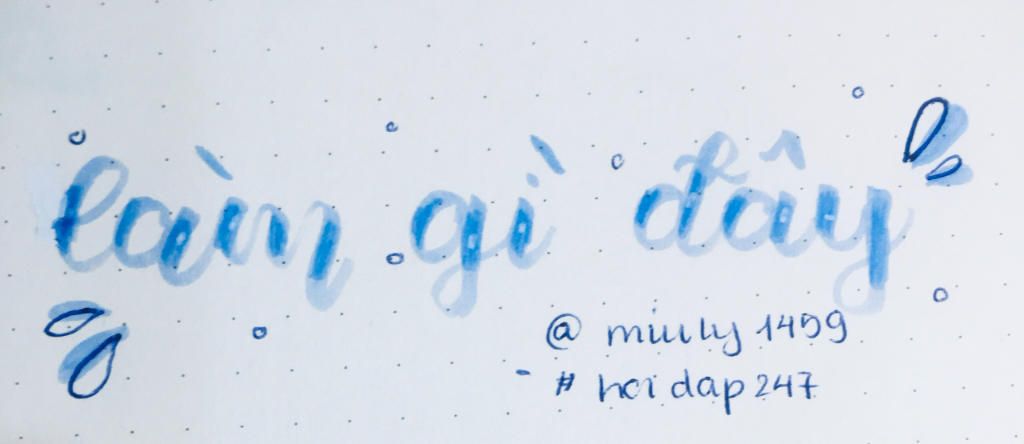 làm gì đây
@ miuly 1459
# hoi dap 247